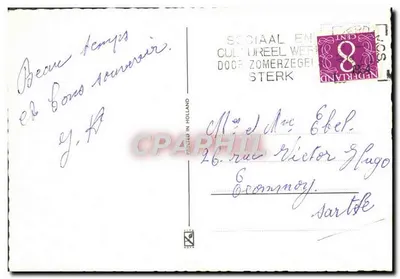 Beau temps
et bons souvenir.
J. K
SOCIAAL EN
CULTUREEL WERK
DOOR ZOMERZEGELS
STERK
NEDERLAND
8
CENT
PRINTED IN HOLLAND
M et Mme Ebel.
26 rue Victor Hugo
Ecommoy.
Sarthe